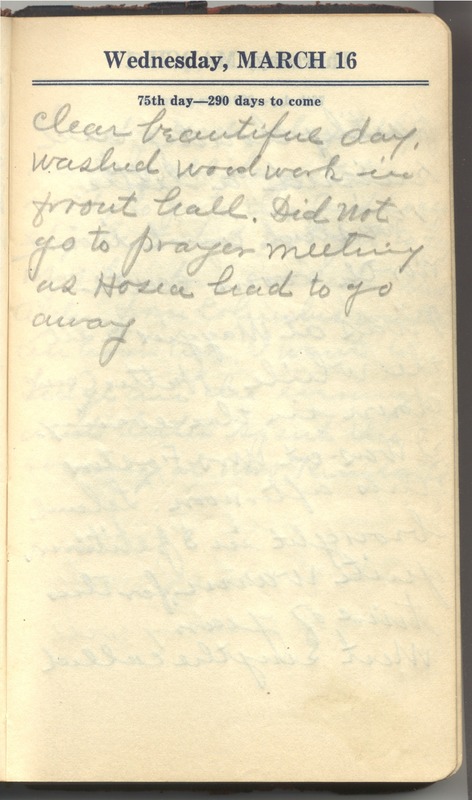 Wednesday, MARCH 16
75th day—290 days to come
Clear beautiful day.
Washed woodwork in
front hall. Did not
go to prayer meeting
as Hosea had to go
away